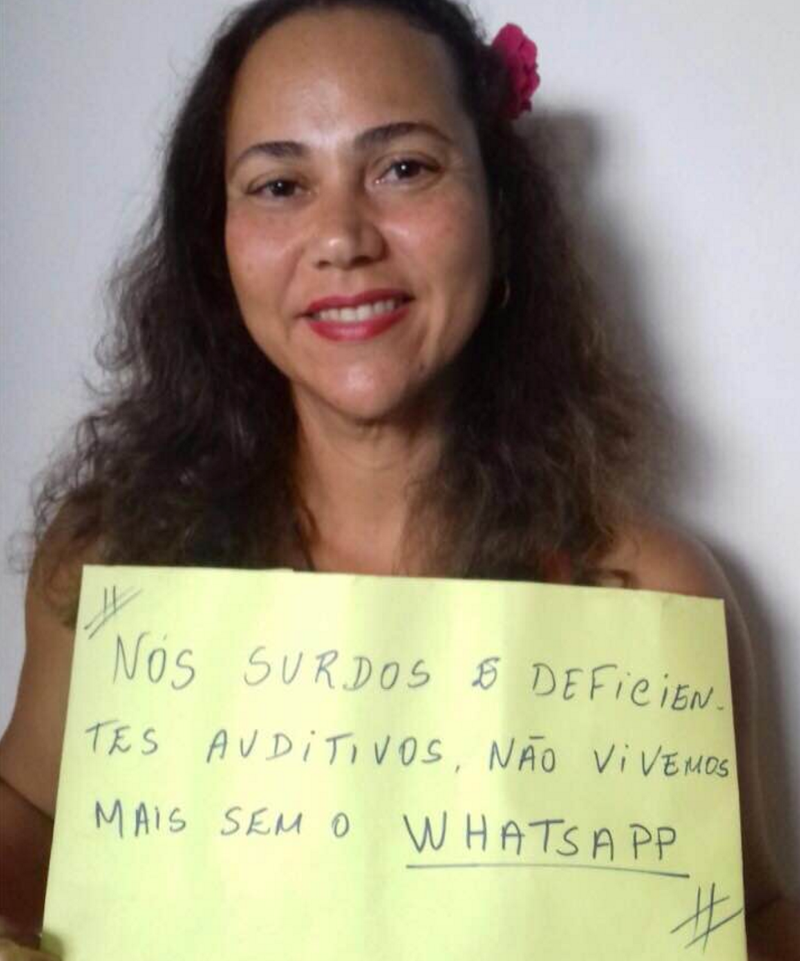 #
NÓS SURDOS E DEFICIEN-
TES AUDITIVOS, NÃO VIVEMOS
MAIS SEM O WHATSAPP
#